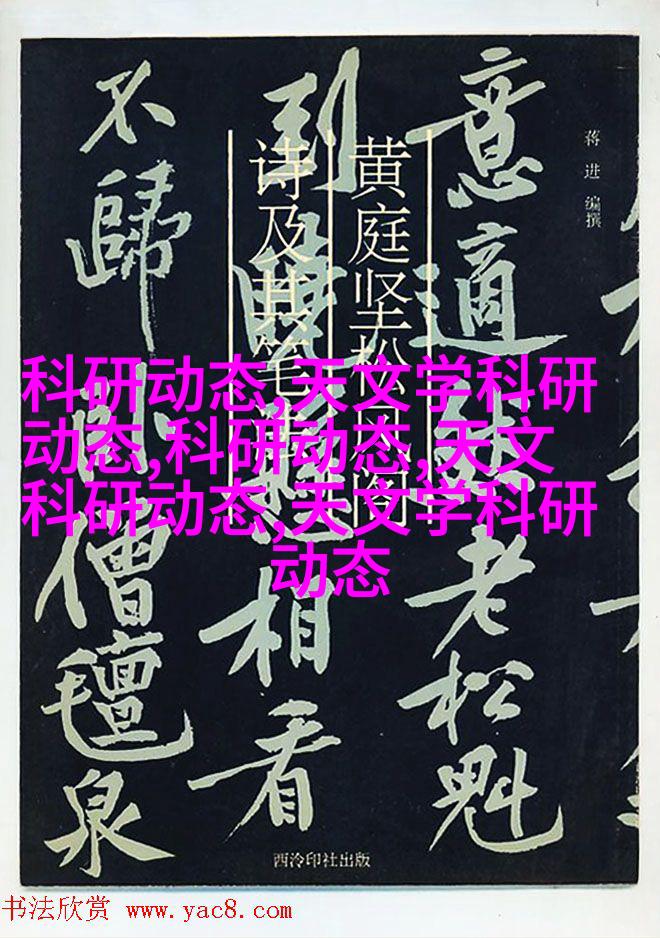 意適然老松魁
到眼
相看
不歸卧僧氊泉
黄庭坚松风阁
诗及其笔
蒋进 编撰
科研动态,天文学科研
动态,科研动态,天文
科研动态,天文学科研
动态
西泠印社出版
书法欣赏 www.yac8.com